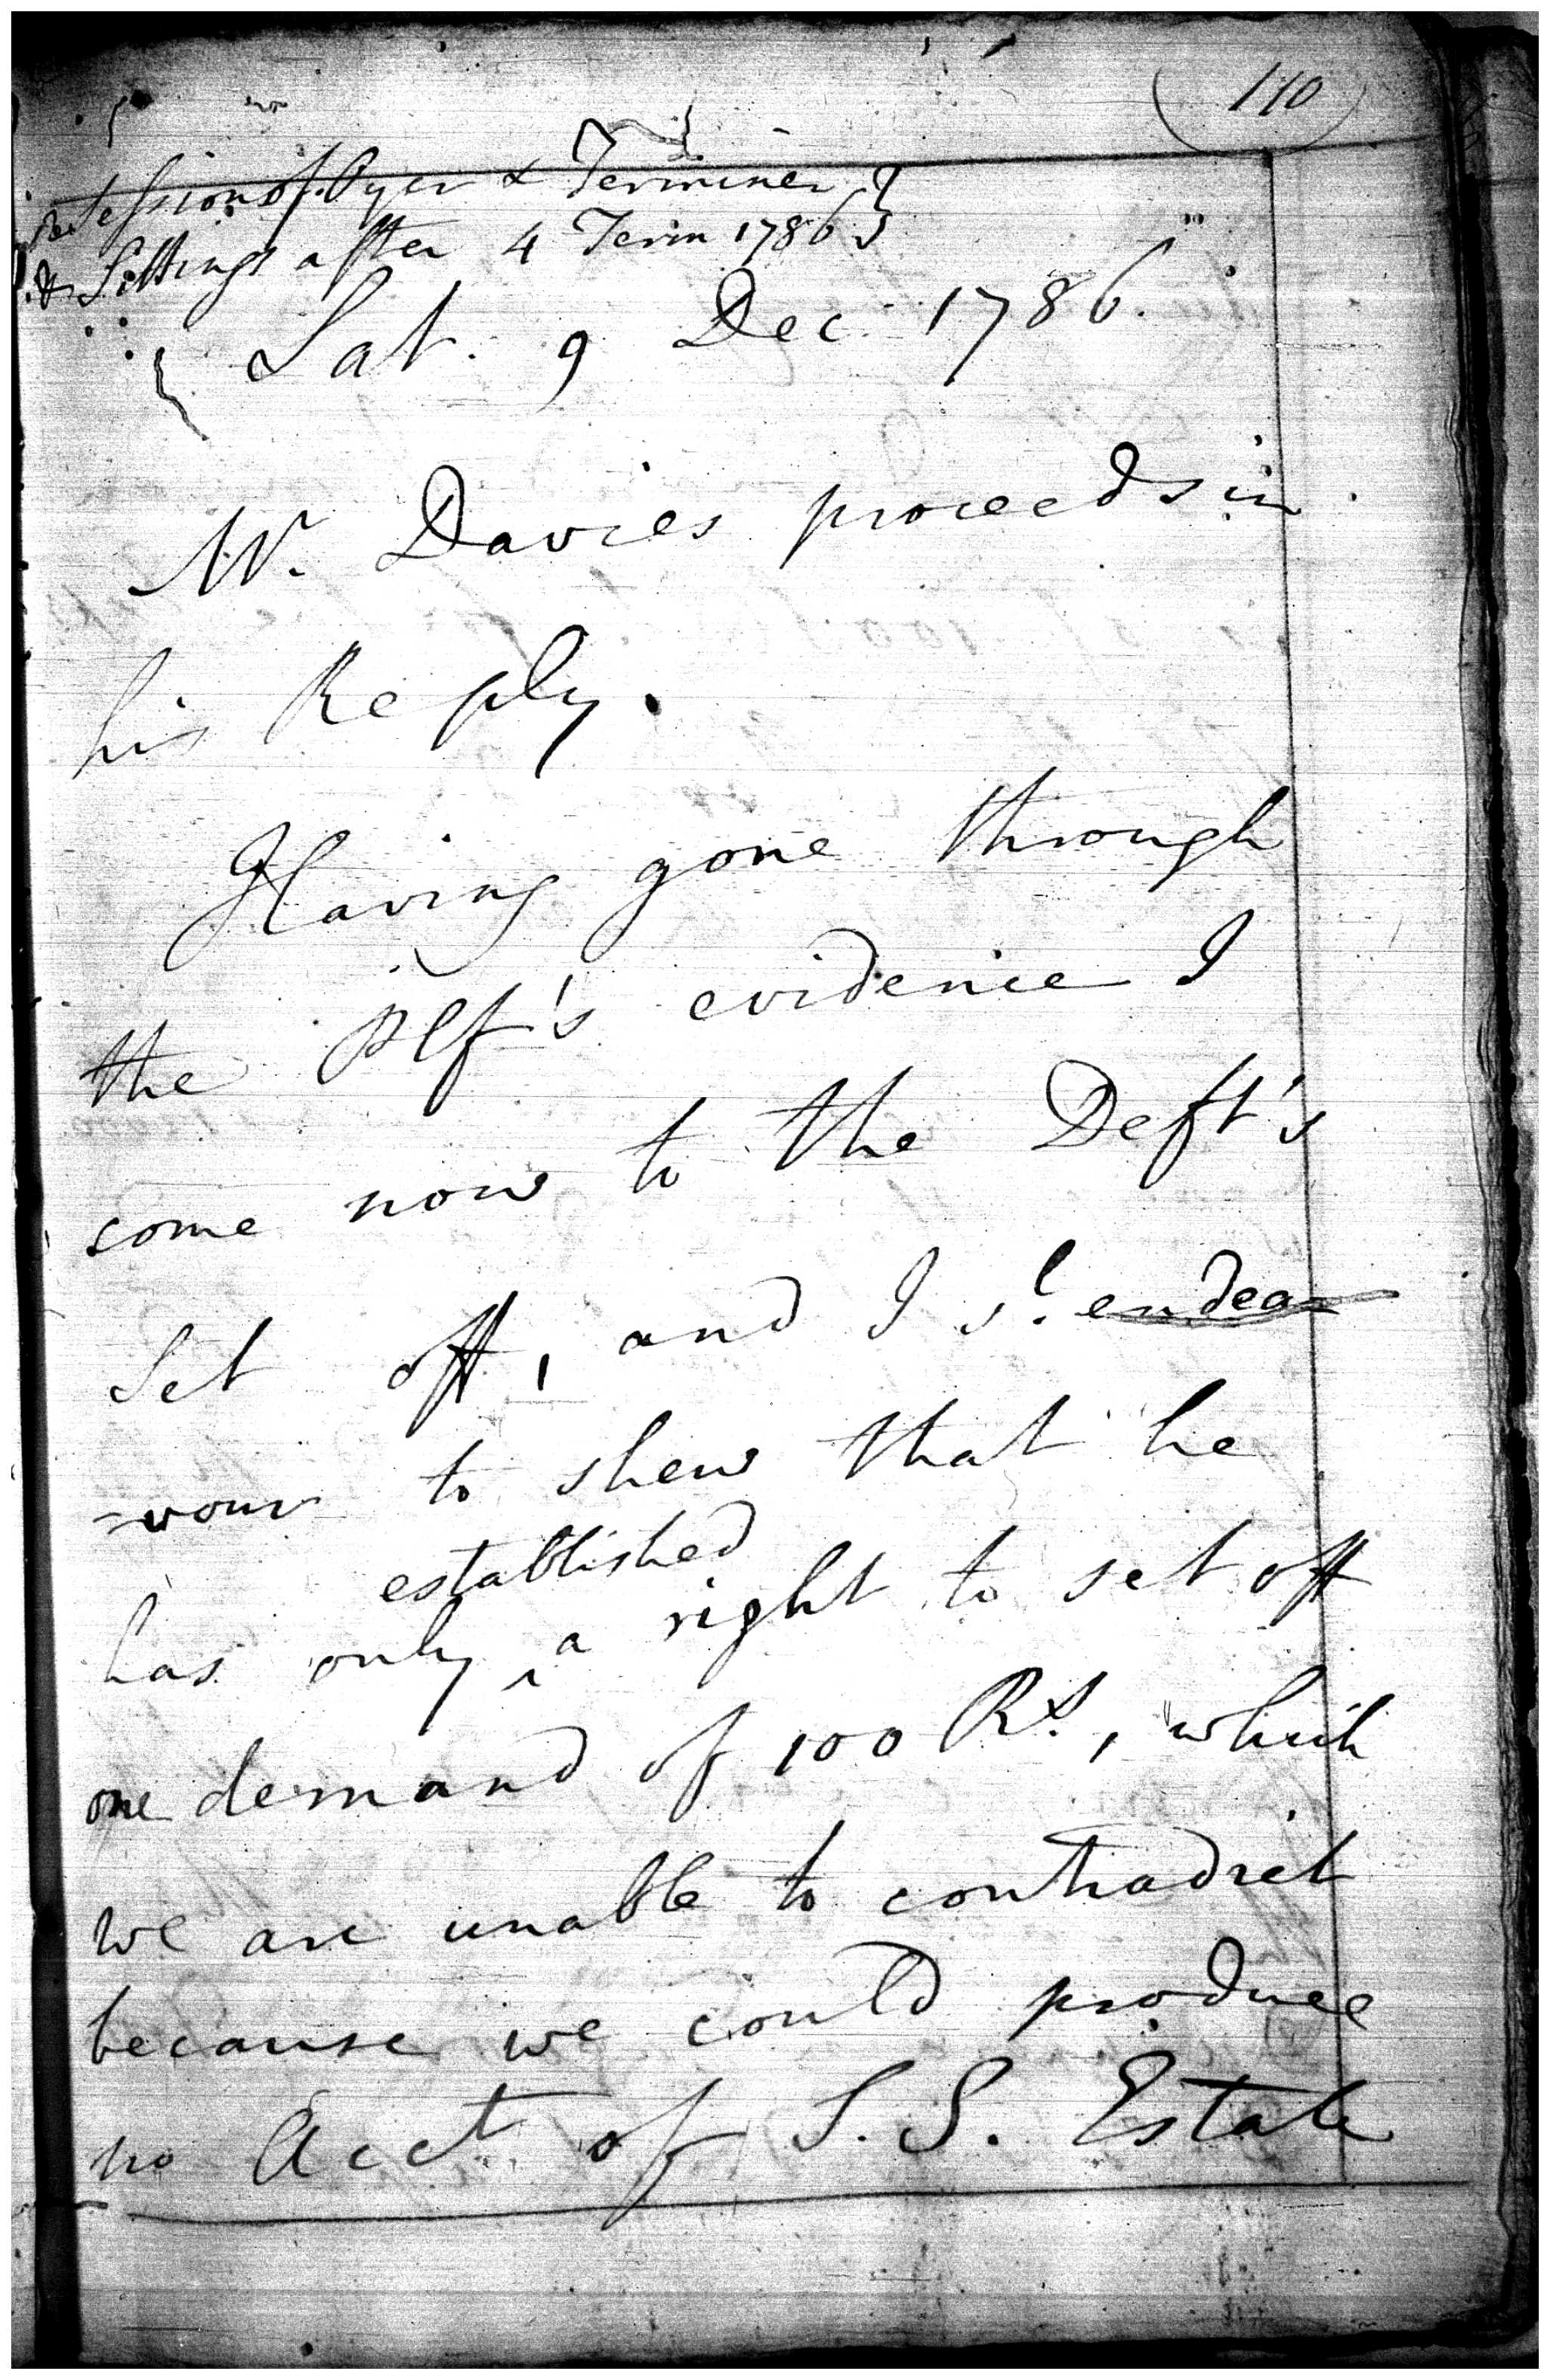 110
Session of Oyer & Terminer
& Sittings after 4 Term 1786
Sat. 9 Dec. 1786.
Mr. Davies proceeds in
his Reply.
Having gone through
the Plf's evidence I
come now to the Deft's
Set off, and I sl. endea
-vour to shew that he
established
has only ^ a right to set off
one demand of 100 Rs., which
we are unable to contradict
because we could produce
no Acct of S. S. Estate